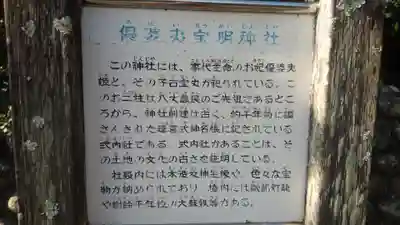 優婆夷宝明神社
この神社には、事代主命のお妃優婆夷
姫と、その子古宝丸が祀られている。こ
のお二柱は八丈島民のご先祖であるとこ
ろから、神社創建は古く、約千年前に編
さんされた延喜式神名帳に記されている
式内社である。式内社があることは、そ
の土地の文化の古さを証明している。
社殿内には木造女神坐像や、色々な宝
物が納められており、境内には
や樹齢千年位の大蘇鉄等がある。